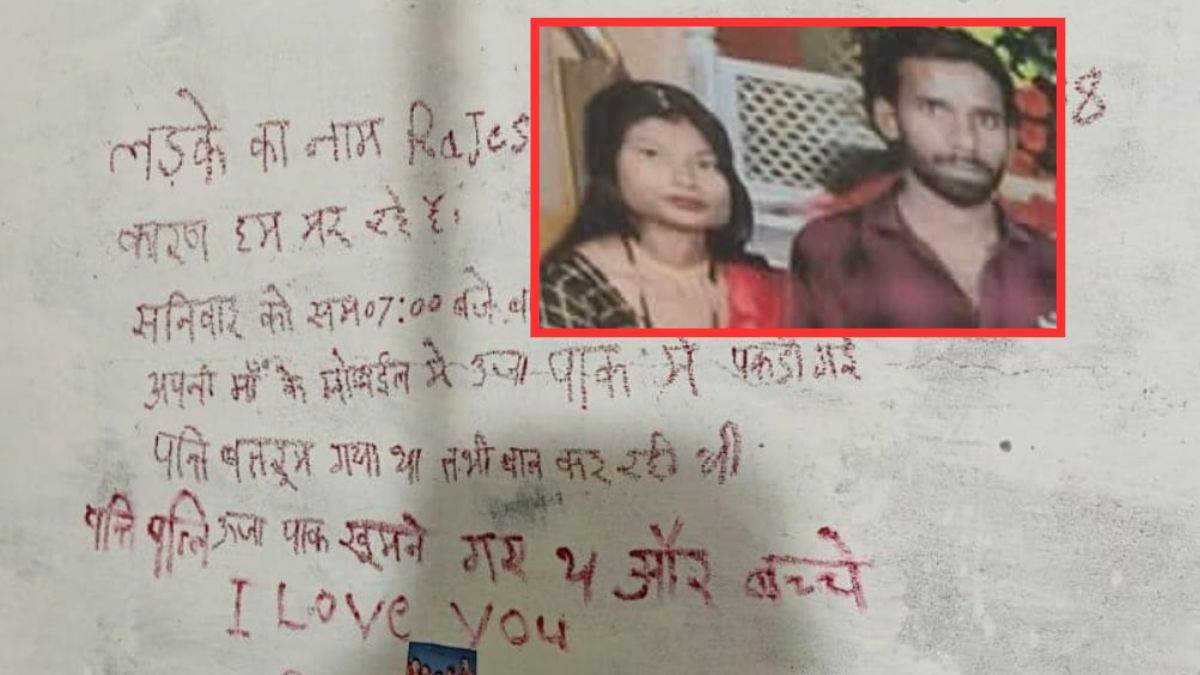 लड़के का नाम RaJes 8
कारण हम मर रहे है।
सनिवार को सम07:00 बजे ब
अपनी माँ के मोबाईल मे उजा पाक मे पकडी गई
पति बातरूम गया था तभी बात कर रही थी
पति पत्नि ऊजा पाक घूमने गए थे और बच्चे
I LOVe you